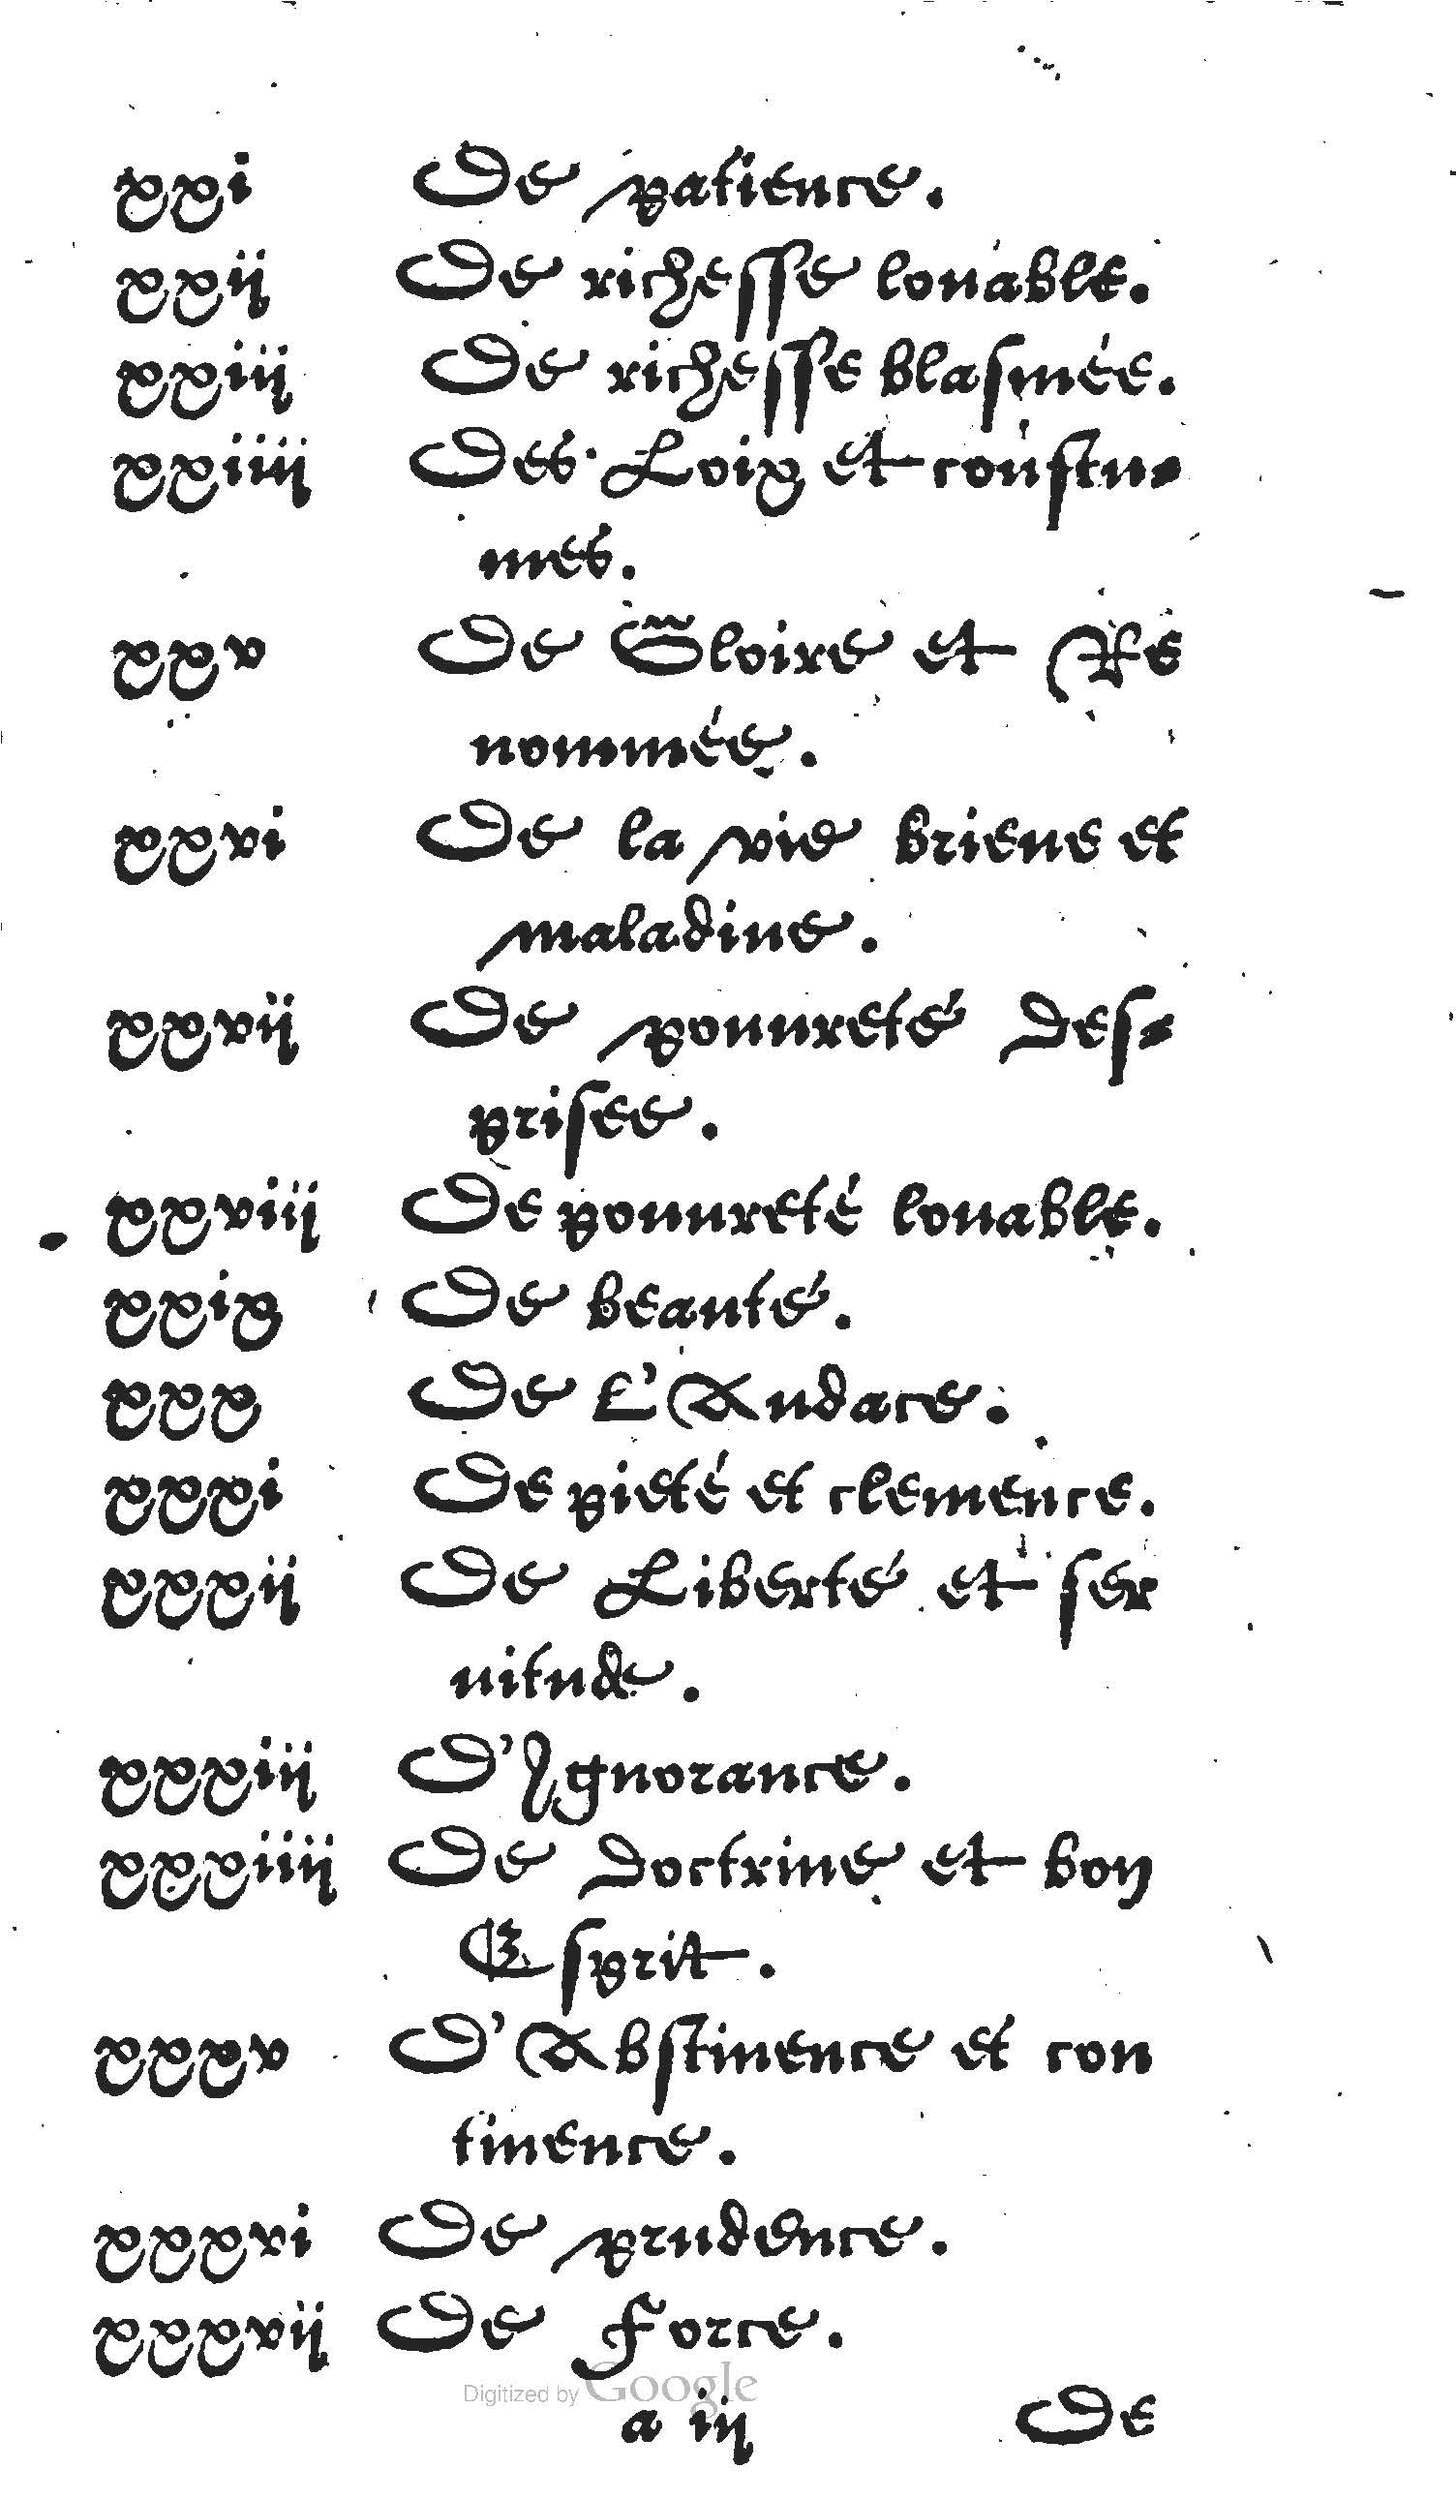 xxi De patience.
xxii De richesse louable.
xxiii De richesse blasmée.
xxiiii Des Loix et coustu-
mes.
xxv De Gloire et Re
nommée.
xxvi De la vie brieue et
maladiue.
xxvii De pouureté des-
prisee.
xxviii De pouureté louable.
xxix De beauté.
xxx De L'Audace.
xxxi De pieté et clemence.
xxxii De Liberté et ser
uitude.
xxxiii D'Ignorance.
xxxiiii De doctrine et bon
Esprit.
xxxv D'Abstinence et con
tinence.
xxxvi De prudence.
xxxvii De Force.
Digitized by Google
a iii De